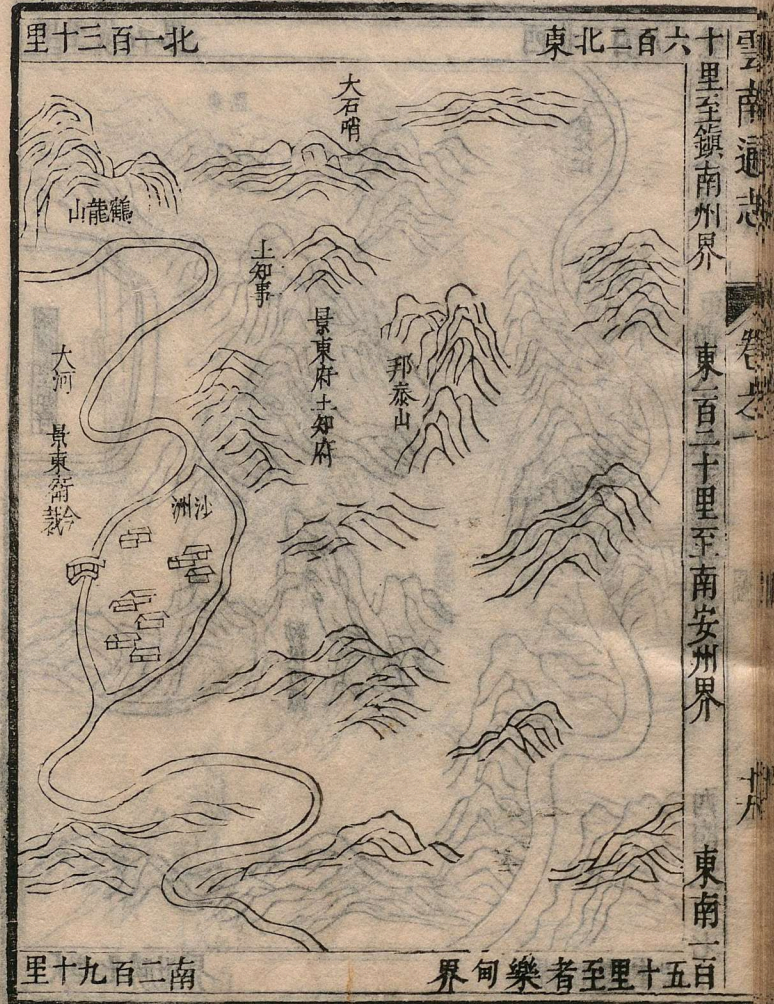 雲南通志
卷之一
十八
東北二百六十里至鎮南州界
東一百二十里至南安州界
東南一百五十里至者樂甸界
北一百三十里
南二百九十里
大石哨
鶴龍山
上知事
景東府土知府
邦泰山
大河
景東衛今裁
沙洲